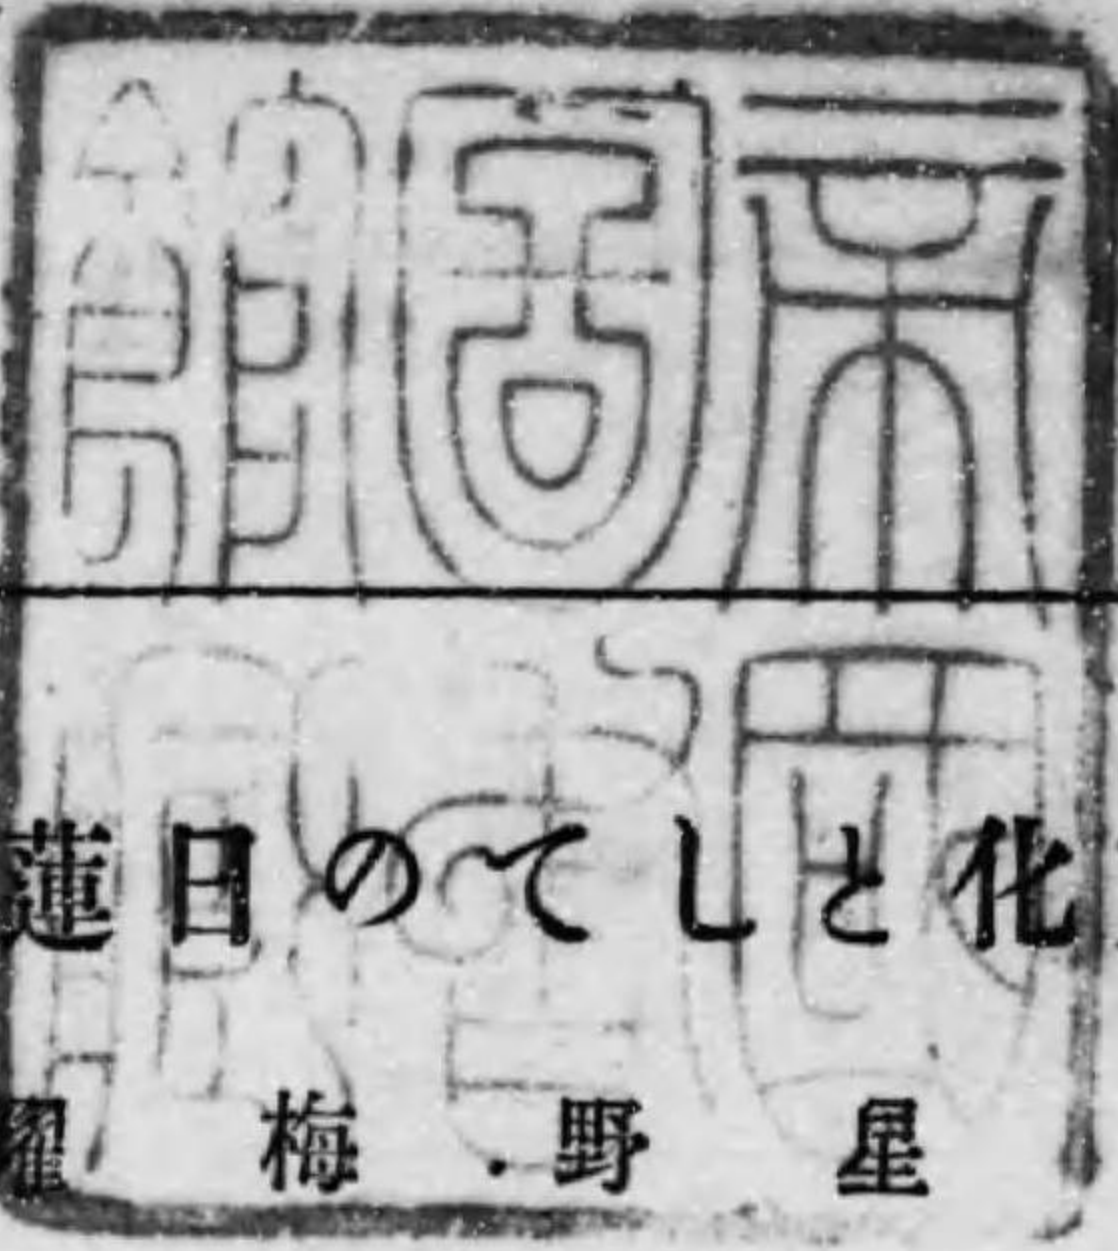 帝國
圖書
館藏
化としての日蓮
星野梅耀